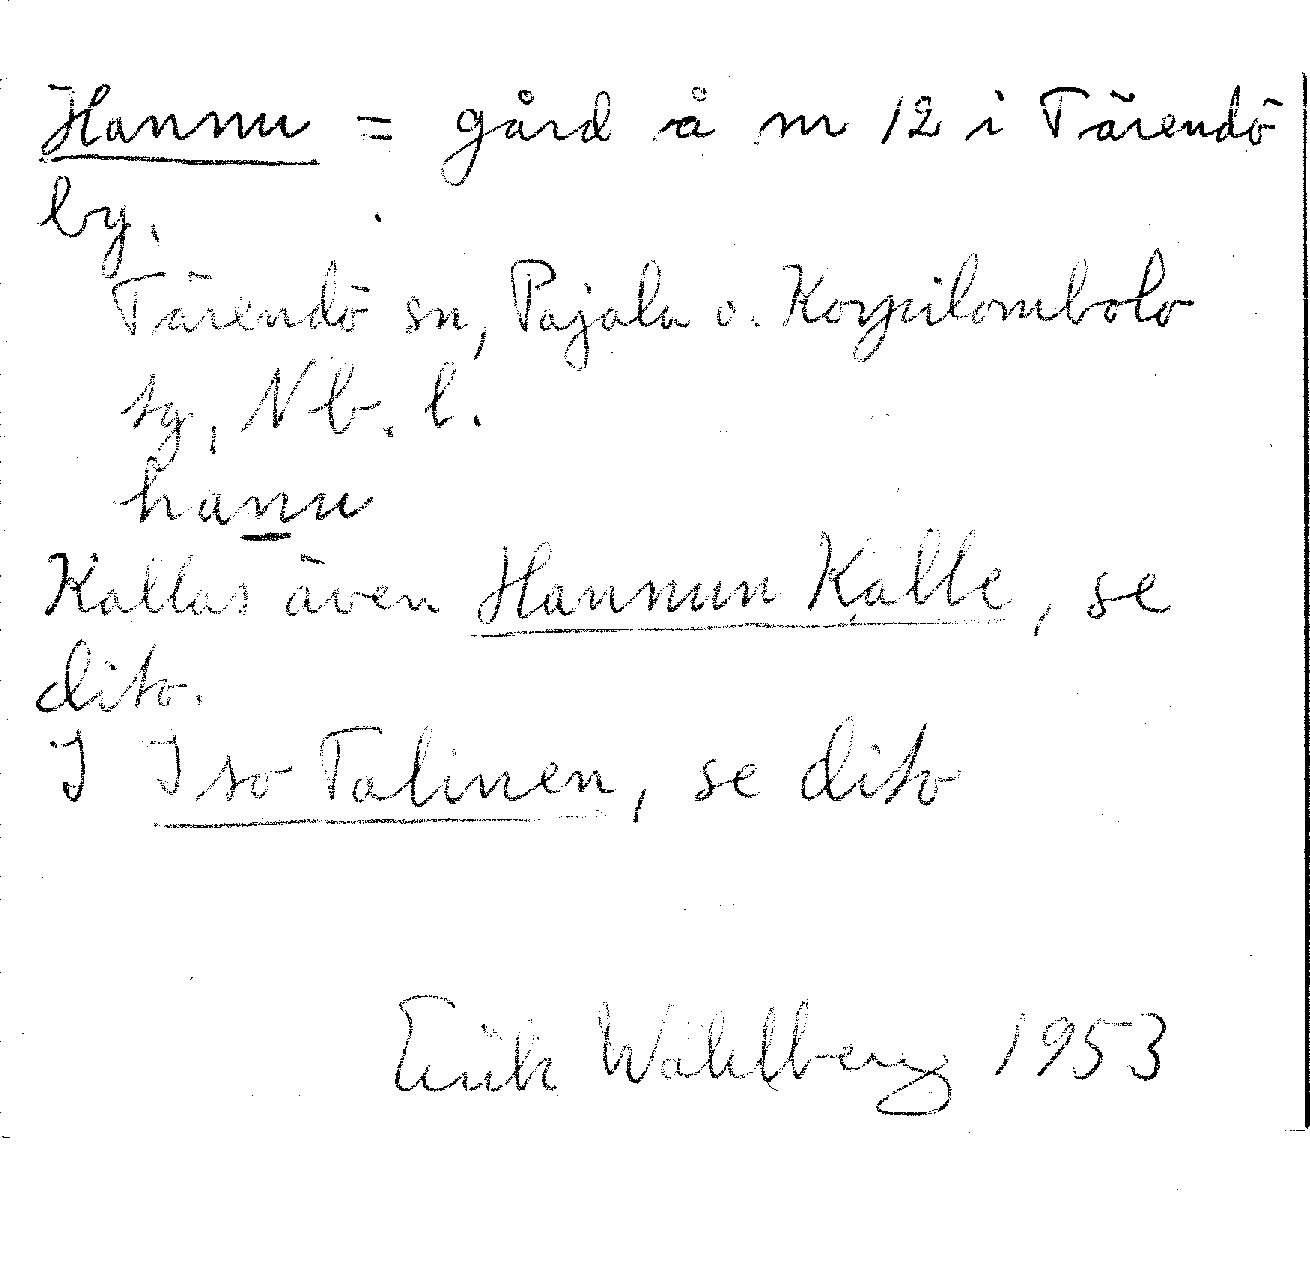 Hannu = gård å nr 12 i Tärendö
by.
Tärendö sn, Pajala o. Korpilombolo
tg, Nb. l.
hanu
Kallas även Hannun Kalle, se
dito.
I Iso Talinen, se dito
Erik Wahlberg 1953